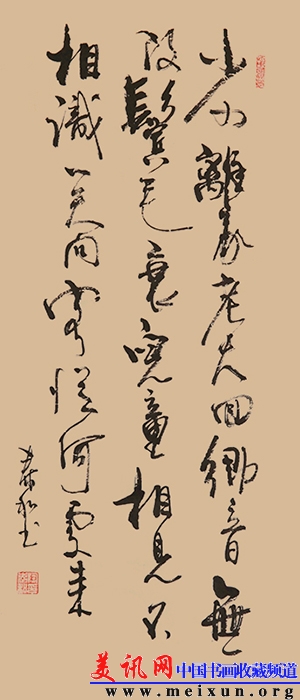 少小離家老大回鄉音無
改鬢毛衰兒童相見不
相識笑問客從何處来
书
美讯网 中国书画收藏频道
www.meixun.org